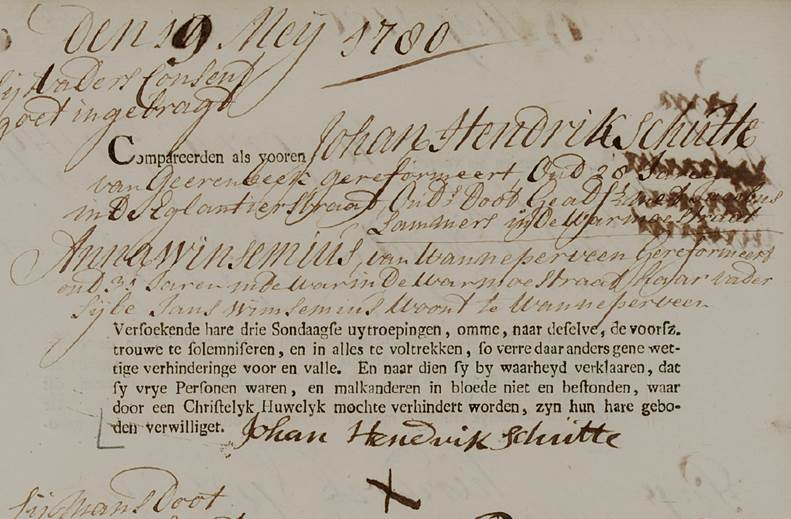 Den 19 Meij 1780
Vaders Consent
goet ingebragt
Compareerden als vooren Johan Hendrik Schutte
van Geerenbeek gereformeert, Oud 28 Jaren
in D Eglantierstraat Oud.s Doot Geadst met Jacobus
Lammers in De Warmoestraat
Anna Winsemius, van Wanneperveen Gereformeert
oud 31 Jaren in de Warmoestraat haar vader
Sijbe Jans Winsemius Woont te Wanneperveen
Versoekende hare drie Sondaagse uytroepingen, omme, naar deselve, de voorsz.
trouwe te solemniseren, en in alles te voltrekken, so verre daar anders gene wet-
tige verhinderinge voor en valle. En naar dien sy by waarheyd verklaaren, dat
sy vrye Personen waren, en malkanderen in bloede niet en bestonden, waar
door een Christelyk Huwelyk mochte verhindert worden, zyn hun hare gebo-
den verwilliget. Johan Hendrik Schütte
X
Doot